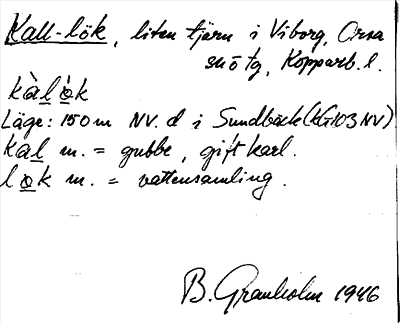 Kall-lök, liten tjärn i Viborg, Orsa
snō tg, Kopparb. l.
kàl̲ò̲k
Läge: 150 m NV. d i Sundbäck (KG103 NV)
kal̲ m. = gubbe, gift karl.
lo̲k m. = vattensamling.
B. Granholm 1946